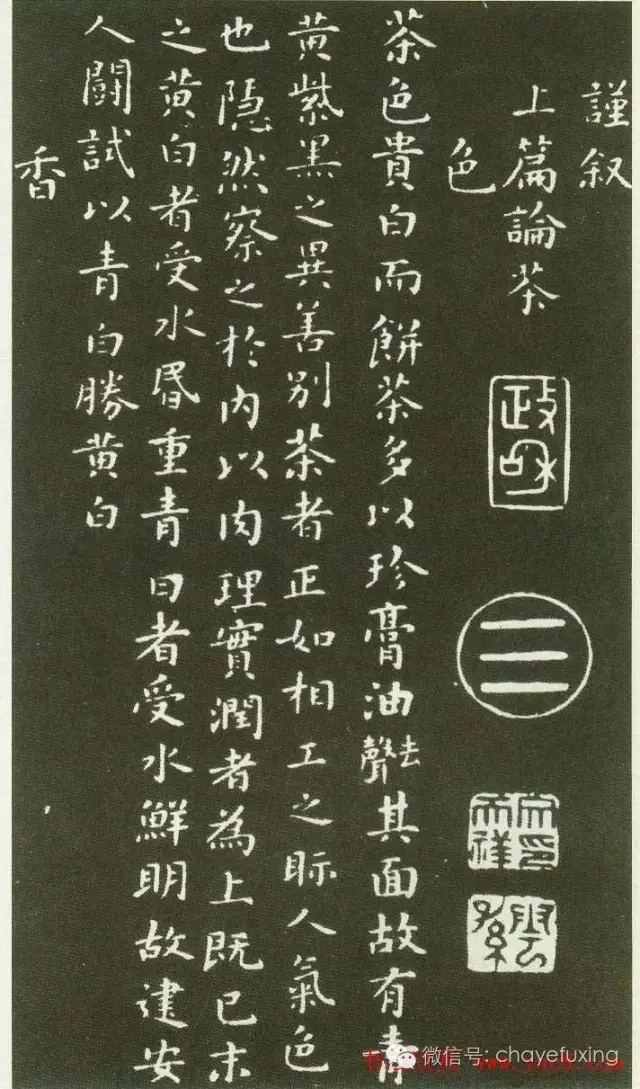 謹叙
上篇論茶
色
茶色貴白而餅茶多以珍膏油去聲其面故有青
黄紫黑之異善别茶者正如相工之眎人氣色
也隱然察之於内以肉理實潤者為上既已末
之黄白者受水昬重青白者受水鮮明故建安
人闘試以青白勝黄白
香
政和
三
微信号: chayefuxing